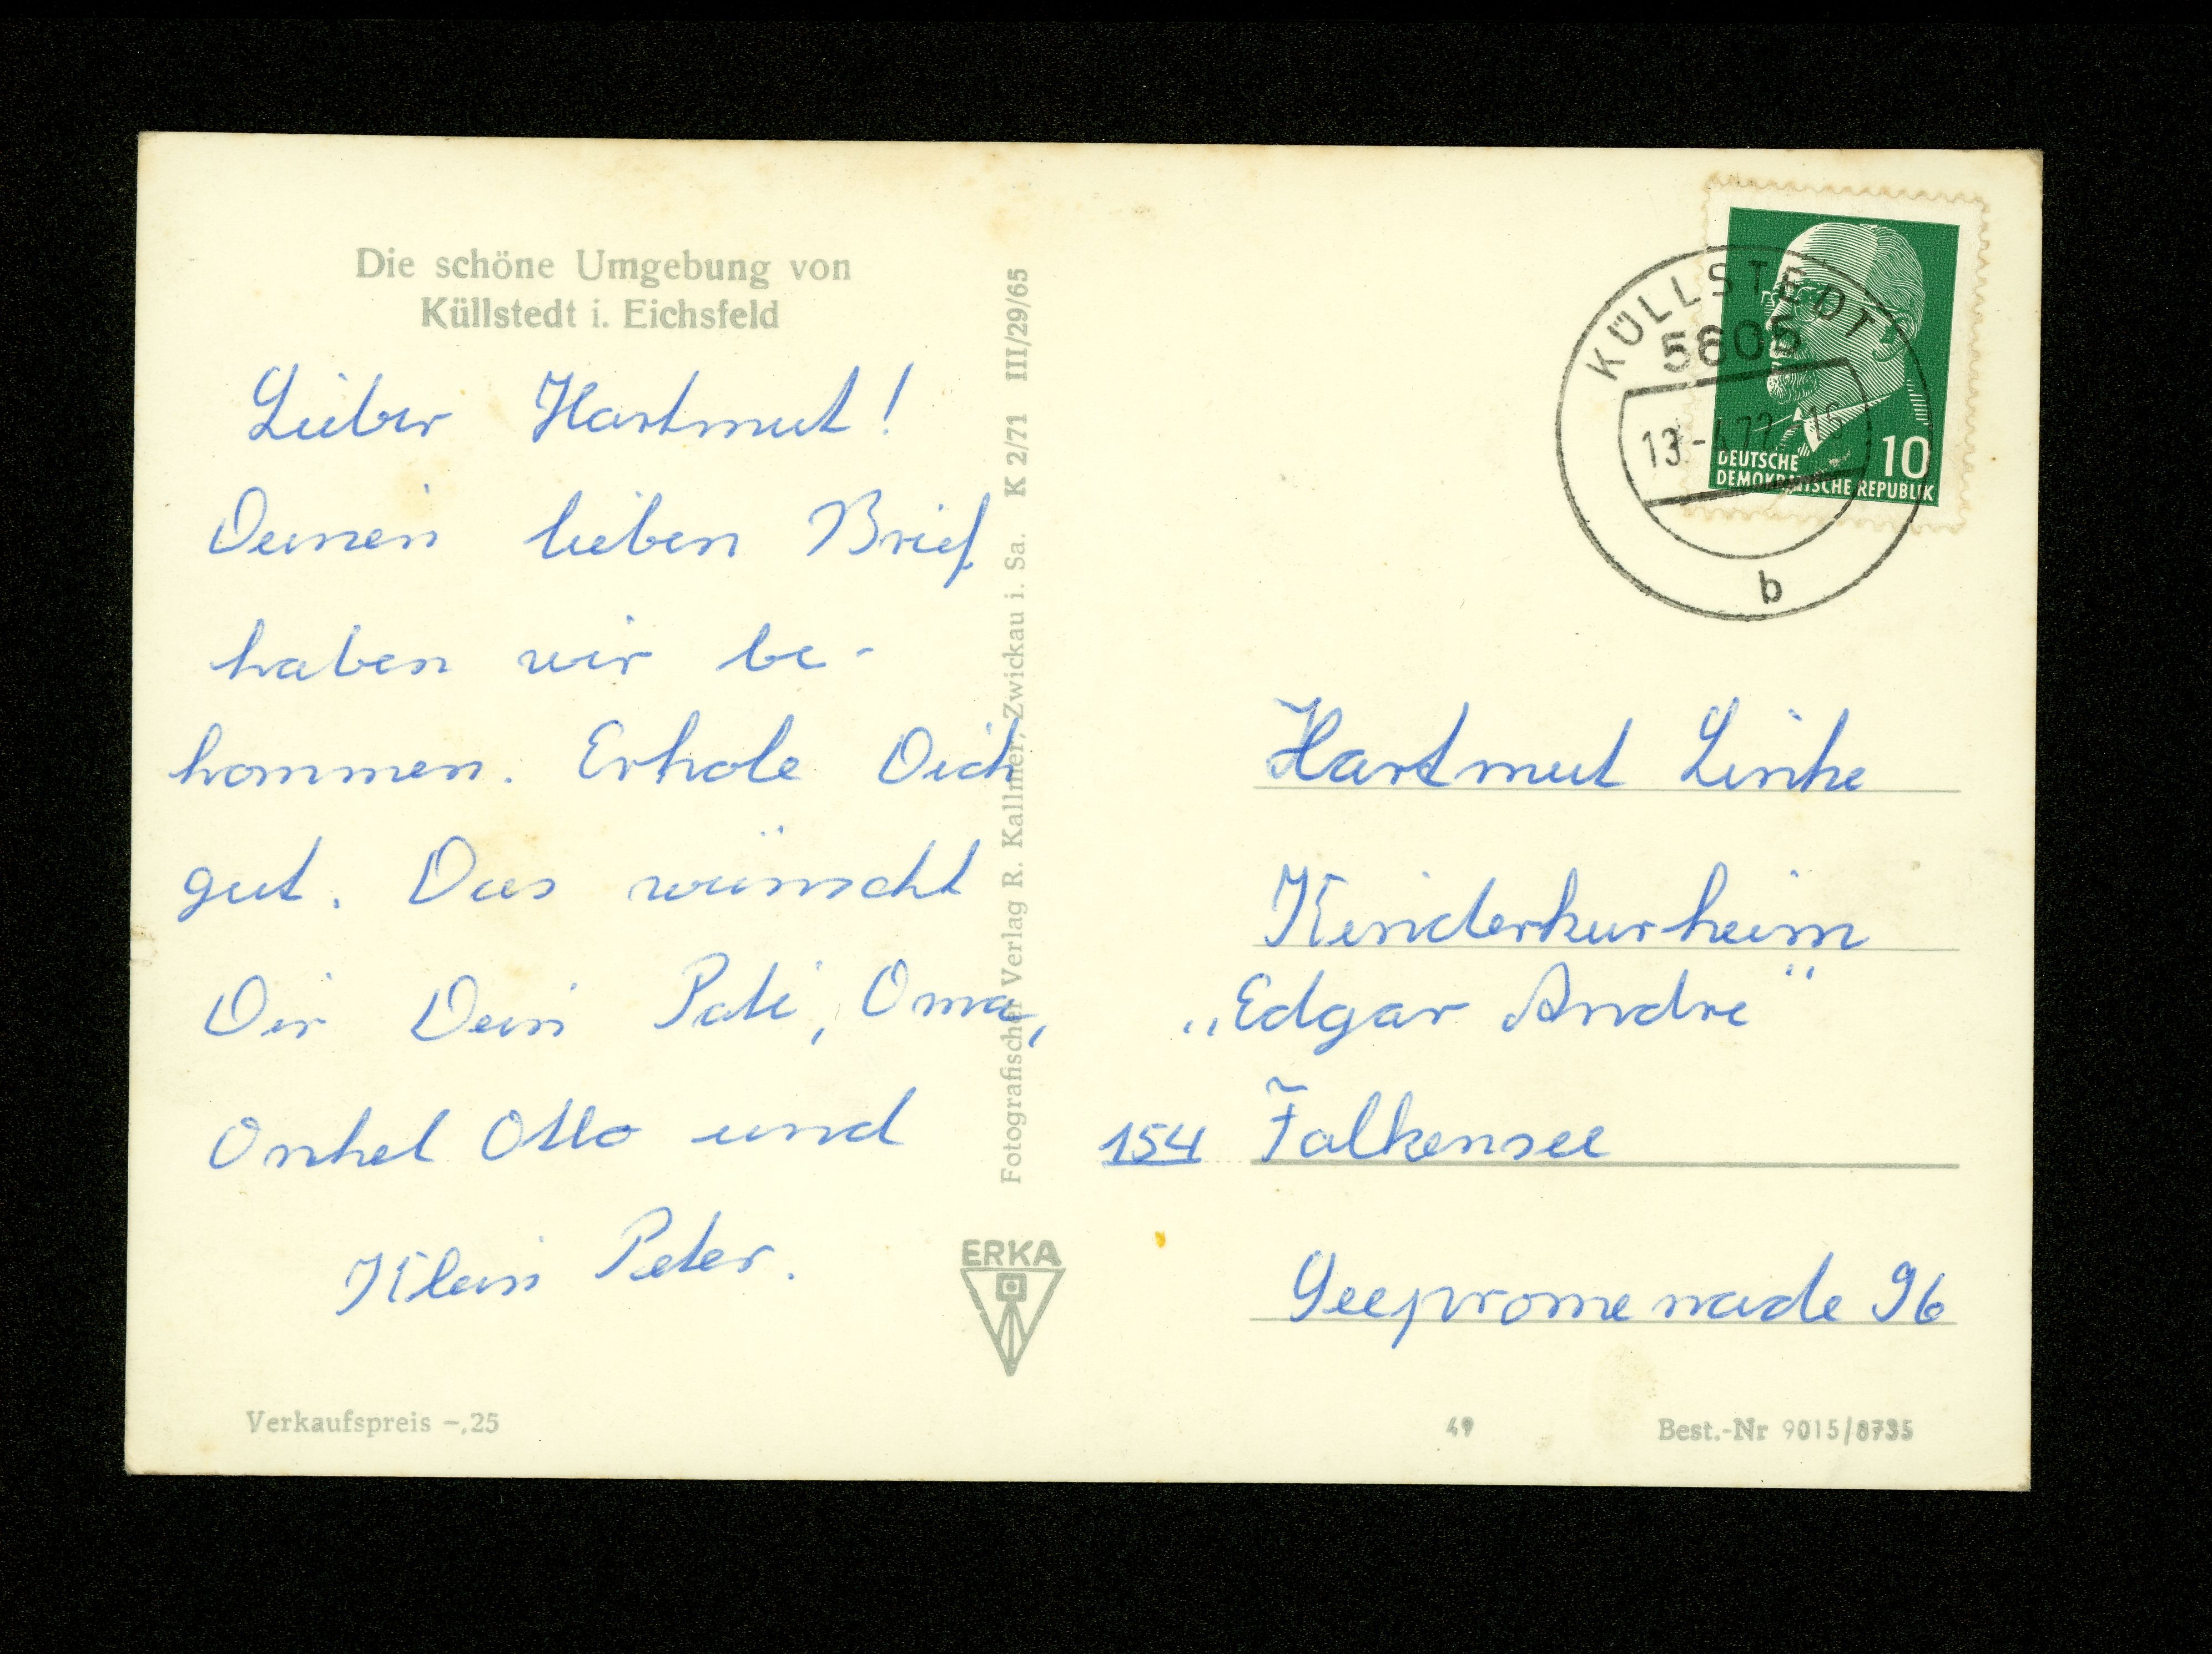 Die schöne Umgebung von
Küllstedt i. Eichsfeld
Lieber Hartmut!
Deinen lieben Brief
haben wir be-
kommen. Erhole Dich
gut. Das wünscht
Dir Dein Pati, Oma,
Onkel Otto und
Klein Peter.
Verkaufspreis -.25
Fotografischer Verlag R. Kallmer, Zwickau i. Sa. K 2/71 III/29/65
ERKA
KÜLLSTEDT
5605
13.-
b
10
DEUTSCHE
DEMOKRATISCHE REPUBLIK
Hartmut Linke
Kinderkurheim
„Edgar Andre"
154 Falkensee
Seepromenade 96
49
Best.-Nr 9015/8735